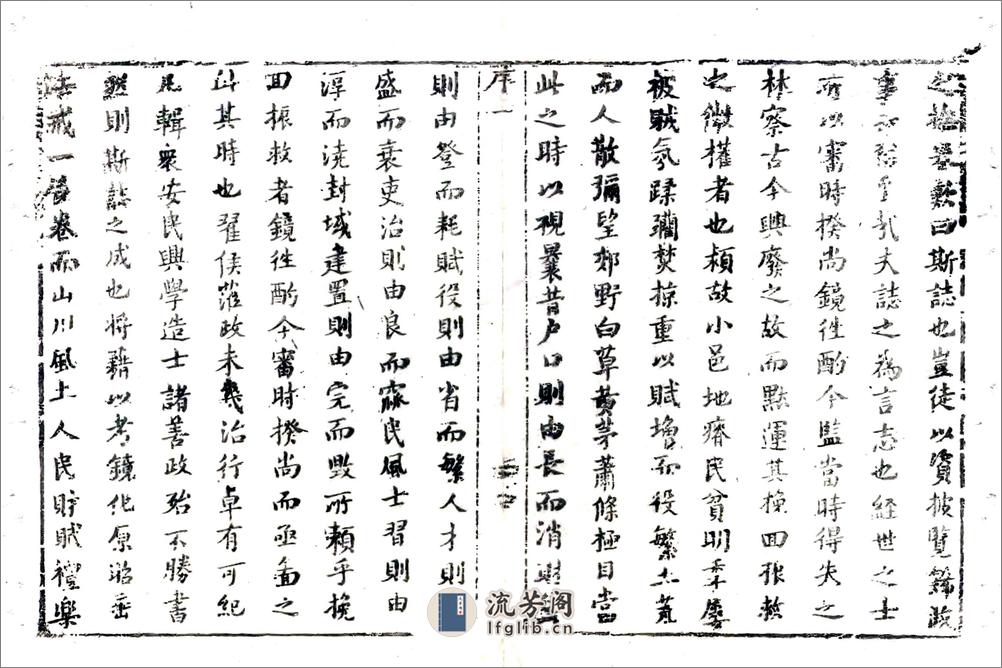 斯誌也豈徒以資披覽
夫誌之為言志也經世之士
以審時揆尚鏡徃酌今監當時得失之
林察古今興廢之故而點運其換回張救
之微權者也潁故小邑地瘠民貧明季屢
被賊氛蹂躪焚掠重以賦增而役繁土荒
而人散彌望郊野白草黃茅蕭條極目當
此之時以視曩昔户口則由長而消
序一
則由登而耗賦役則由省而繁人才則
盛而衰吏治則由良而窳民風士習則由
淳而澆封域建置則由完而毀所賴乎挽
回振救者鏡徃酌今審時揆尚而亟圖之
此其時也翟侯蒞政未幾治行卓有可紀
凡輯衆安民興學造士諸善政殆不勝書
然則斯誌之成也將藉以考鏡化原昭垂
法戒一卷而山川風土人民貯賦禮樂
流芳阁
lfglib.cn